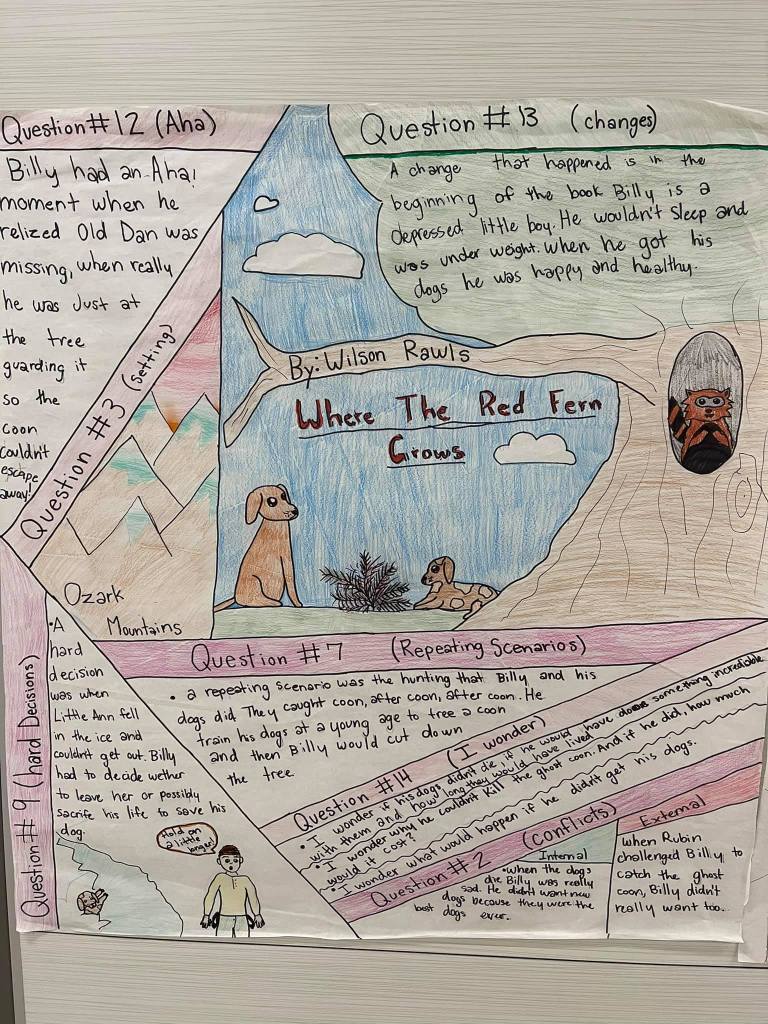 Question #12 (Aha)
Billy had an Aha!
moment when he
relized Old Dan was
missing, when really
he was just at
the tree
guarding it
so the
coon
couldn't
escape
away!
Question #13 (changes)
A change that happened is in the
beginning of the book Billy is a
depressed little boy. He wouldn't sleep and
was under weight. When he got his
dogs he was happy and healthy.
Question #3 (Setting)
Ozark
Mountains
By: Wilson Rawls
Where The Red Fern
Grows
Question #7 (Repeating Scenarios)
• a repeating scenario was the hunting that Billy and his
dogs did. They caught coon, after coon, after coon. He
train his dogs at a young age to tree a coon
and then Billy would cut down
the tree.
Question #9 (hard Decisions)
• A
hard
decision
was when
Little Ann fell
in the ice and
couldn't get out. Billy
had to decide wether
to leave her or possibly
sacrife his life to save his
dog.
Hold on
a little
longer!
Question #14 (I wonder)
• I wonder if his dogs didn't die, if he would have done something incredible
with them and how long they would have lived.
• I wonder why he couldn't kill the ghost coon. And if he did, how much
would it cost?
• I wonder what would happen if he didn't get his dogs.
Question #2 (conflicts)
Internal
• when the dogs
die Billy was really
sad. He didn't want new
dogs because they were the
best dogs ever.
External
when Rubin
challenged Billy to
catch the ghost
coon, Billy didn't
really want too.